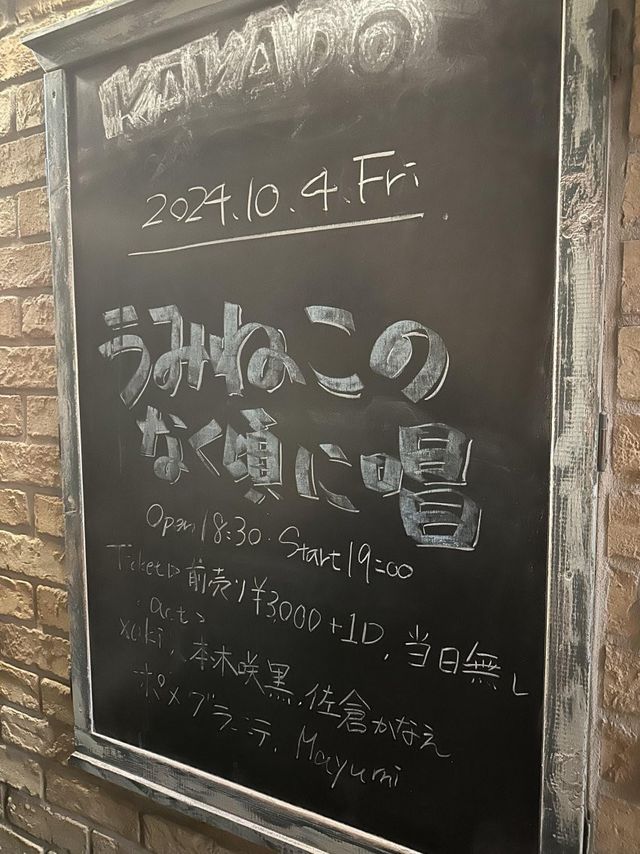 KAKADO
2024.10.4.Fri
うみねこの
なく頃に唱
Open 18:30・Start 19:00
Ticket▷前売り¥3,000+1D, 当日無し
act>
xoki, 本木咲黒, 佐倉かなえ
ポメグラニテ, Mayumi